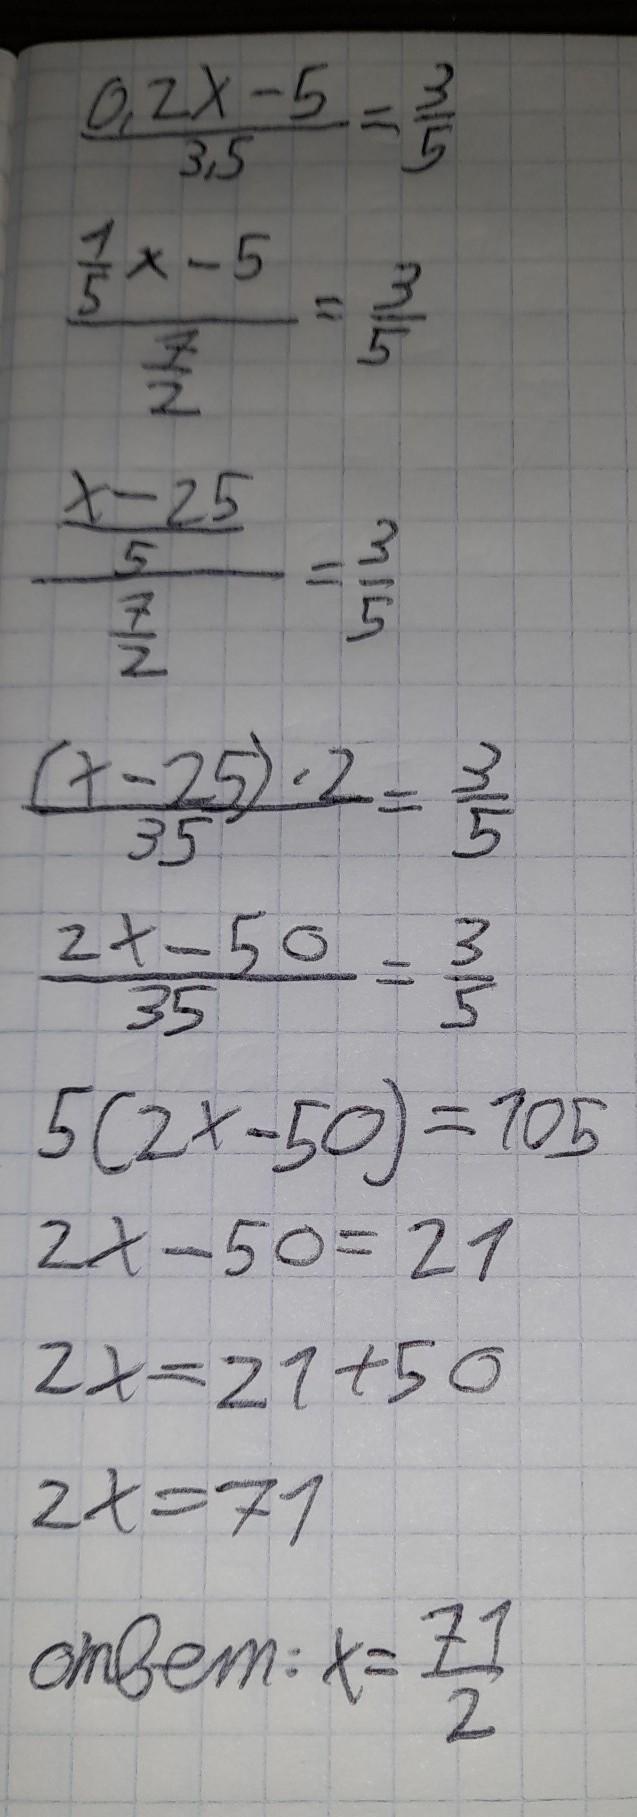 (0,2x-5)/3,5 = 3/5
(1/5 x - 5)/(7/2) = 3/5
((x-25)/5)/(7/2) = 3/5
((x-25)·2)/35 = 3/5
(2x-50)/35 = 3/5
5(2x-50)=105
2x-50=21
2x=21+50
2x=71
ответ: x=71/2